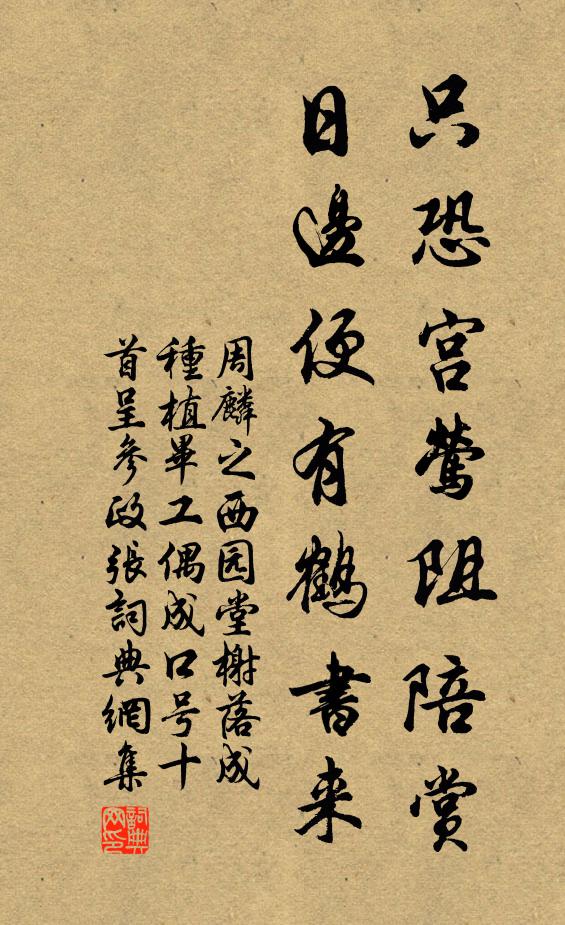 只恐宫莺阻陪赏
日邊便有鹤書来
周麟之西园堂榭落成
種植畢工偶成口号十
首呈參政張詞典網集
詞典網印